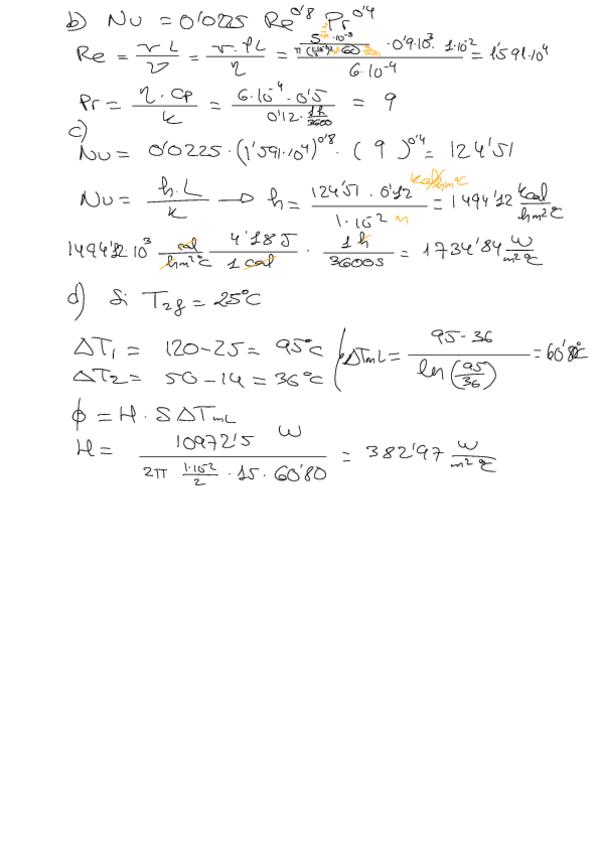 b) Nu = 0'0225 Re^0'8 Pr^0'4
Re = v L / ν = v · ρL / η = · 0'9·10³ · 1·10⁻² / 6·10⁻⁴ = 1'591·10⁴
Pr = η · Cp / k = 6·10⁻⁴ · 0'5 / 0'12 · 1h/3600 = 9
c)
Nu = 0'0225 · (1'591·10⁴)^0'8 · ( 9 )^0'4 = 124'51
Nu = h·L / k → h = 124'51 · 0'12 / 1·10⁻² m = 1494'12 kcal / hm²ºC
1494'12·10³ cal / hm²ºC 4'18 J / 1 cal · 1 h / 3600 s = 1734'84 W / m²ºC
d) Si T2g = 25ºC
ΔT₁ = 120-25 = 95ºC
ΔT₂ = 50-14 = 36ºC
ΔTmL = 95-36 / ln(95/36) = 60'80ºC
ϕ = H · S ΔTmL
H = 10972'5 W / 2π 1·10⁻²/2 · 15 · 60'80 = 382'97 W / m²ºC